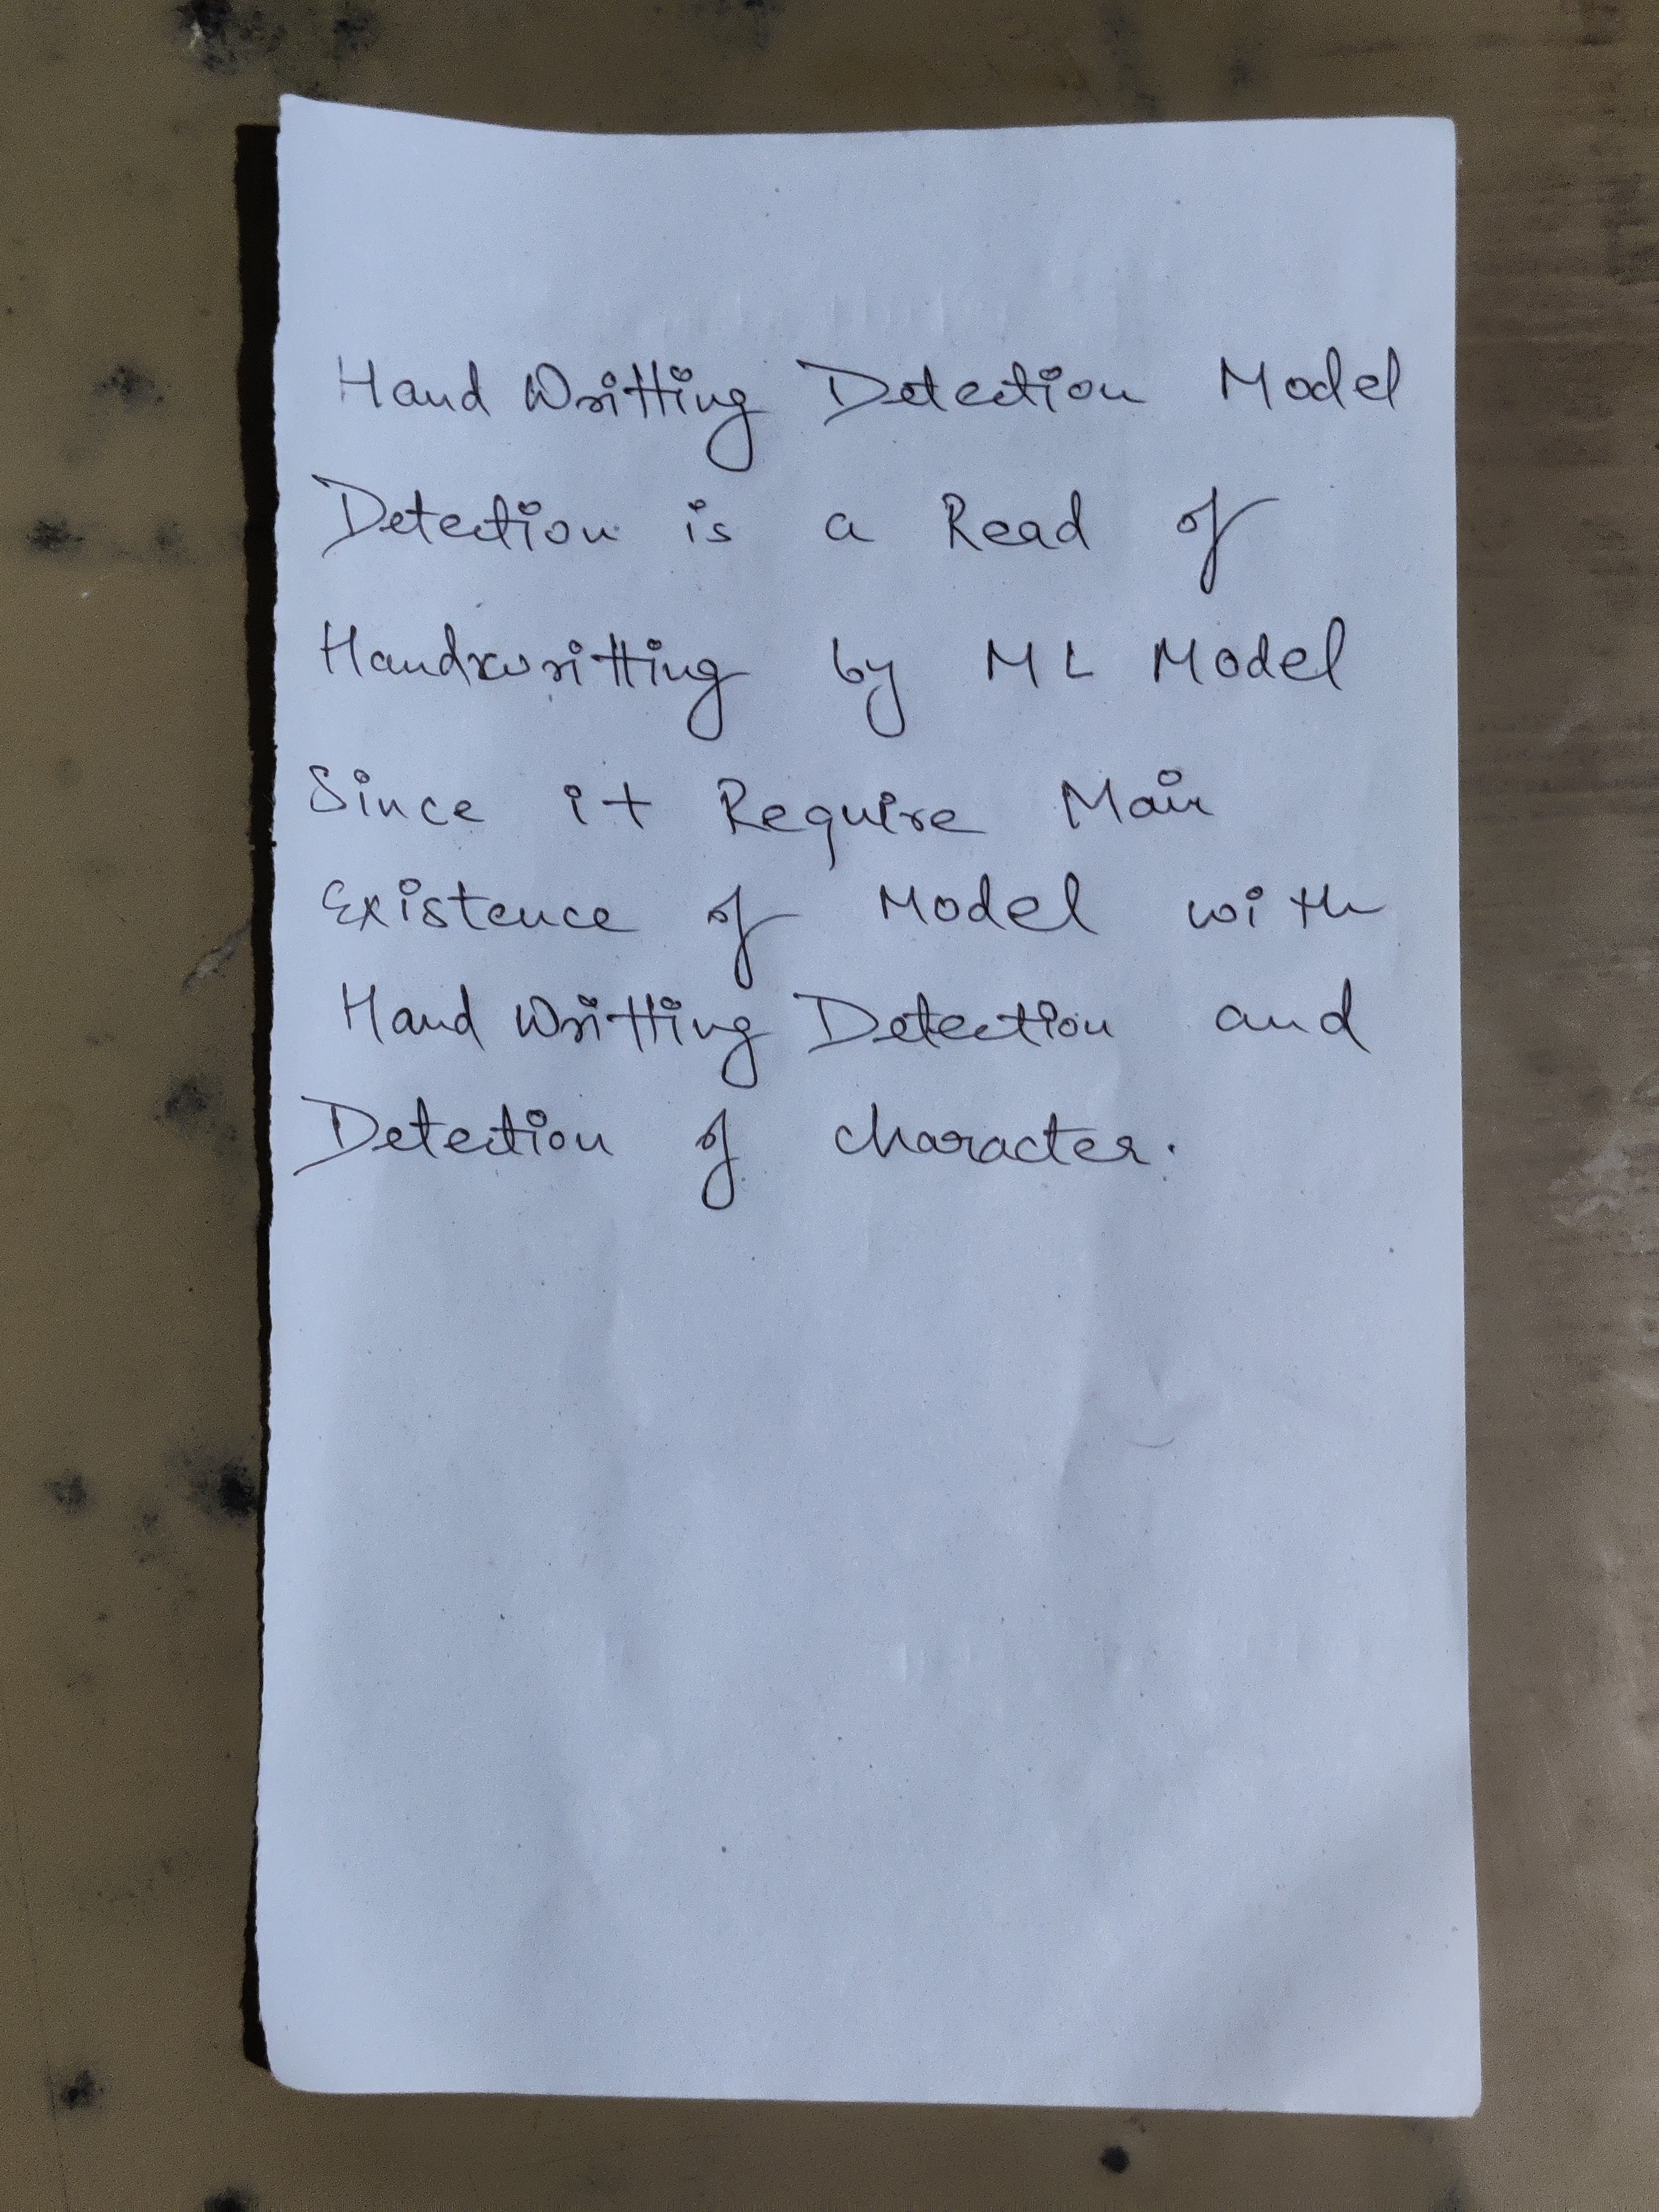 Hand Writting Detection Model
Detection is a Read of
Handwritting by ML Model
Since it Require Main
Existence of Model with
Hand Writting Detection and
Detection of character.